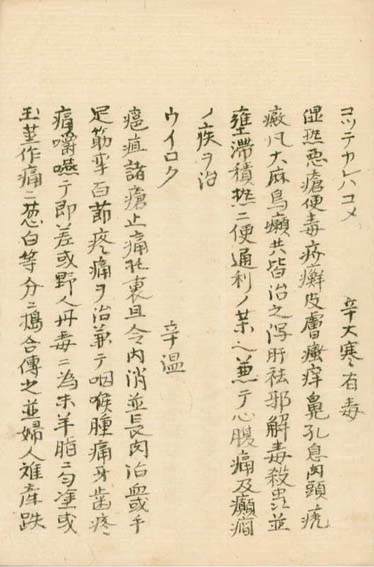 コツテカレハコメ　辛大寒有毒
湿热悪瘡便毒疥癬皮膚瘙痒鼻孔息肉頭瘡
癜凡大麻烏癩共皆治之瀉肝祛邪解毒殺虫並
壅滞積热二便通利ノ薬ヘ兼テ心腹痛及癲癇
ノ疾ヲ治
ウイロク　辛温
癰疽諸瘡止痛托裏且令内消並長肉治血或手
足筋攣百節疼痛ヲ治兼テ咽喉腫痛牙歯疼
痛嚼嚥テ即差或野人丹毒ニ為末羊脂ニ匀塗或
玉茎作痛ニ葱白等分ニ搗合傅之並婦人難産跌